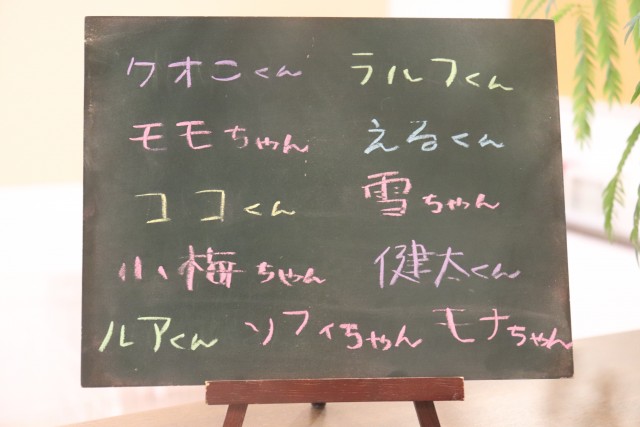 クオニくん ラルフくん
モモちゃん えるくん
ココくん 雪ちゃん
小梅ちゃん 健太くん
ルアくん ソフィちゃん モナちゃん